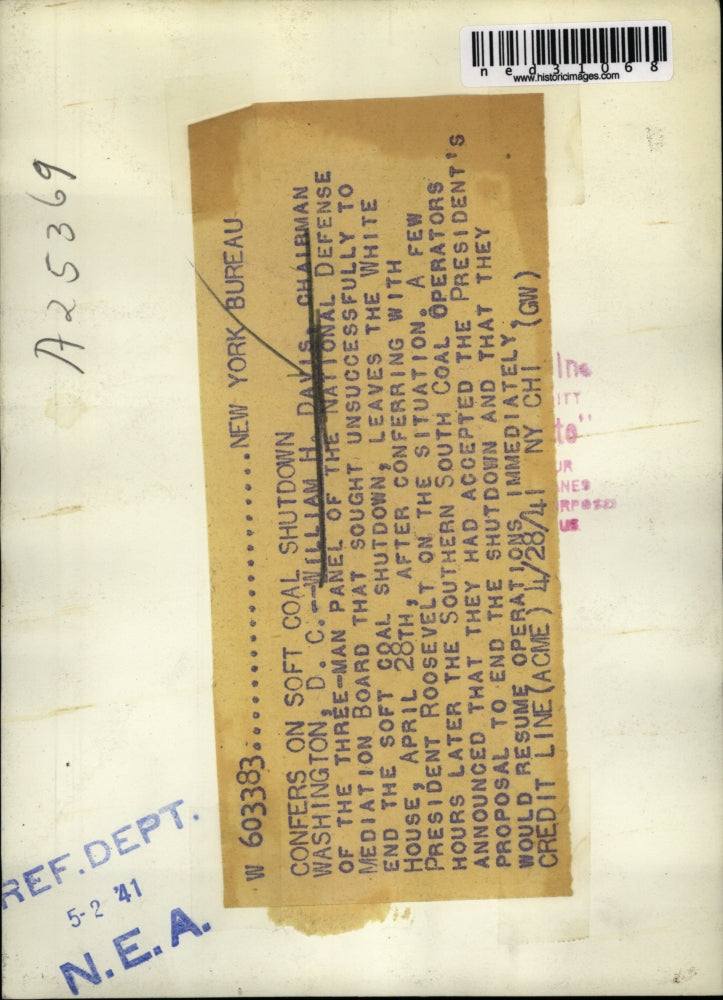 ned31068
www.historicimages.com
A25369
W 603383....................NEW YORK BUREAU
CONFERS ON SOFT COAL SHUTDOWN
WASHINGTON, D. C.--WILLIAM H. DAVIS, CHAIRMAN
OF THE THREE-MAN PANEL OF THE NATIONAL DEFENSE
MEDIATION BOARD THAT SOUGHT UNSUCCESSFULLY TO
END THE SOFT COAL SHUTDOWN, LEAVES THE WHITE
HOUSE, APRIL 28TH, AFTER CONFERRING WITH
PRESIDENT ROOSEVELT ON THE SITUATION. A FEW
HOURS LATER THE SOUTHERN SOUTH COAL OPERATORS
ANNOUNCED THAT THEY HAD ACCEPTED THE PRESIDENT'S
PROPOSAL TO END THE SHUTDOWN AND THAT THEY
WOULD RESUME OPERATIONS IMMEDIATELY.
CREDIT LINE (ACME) 4/28/41 NY CHI (GW)
REF. DEPT.
5-2 '41
N.E.A.
Inc
ITY
to"
UR
NES
RPOSES
US